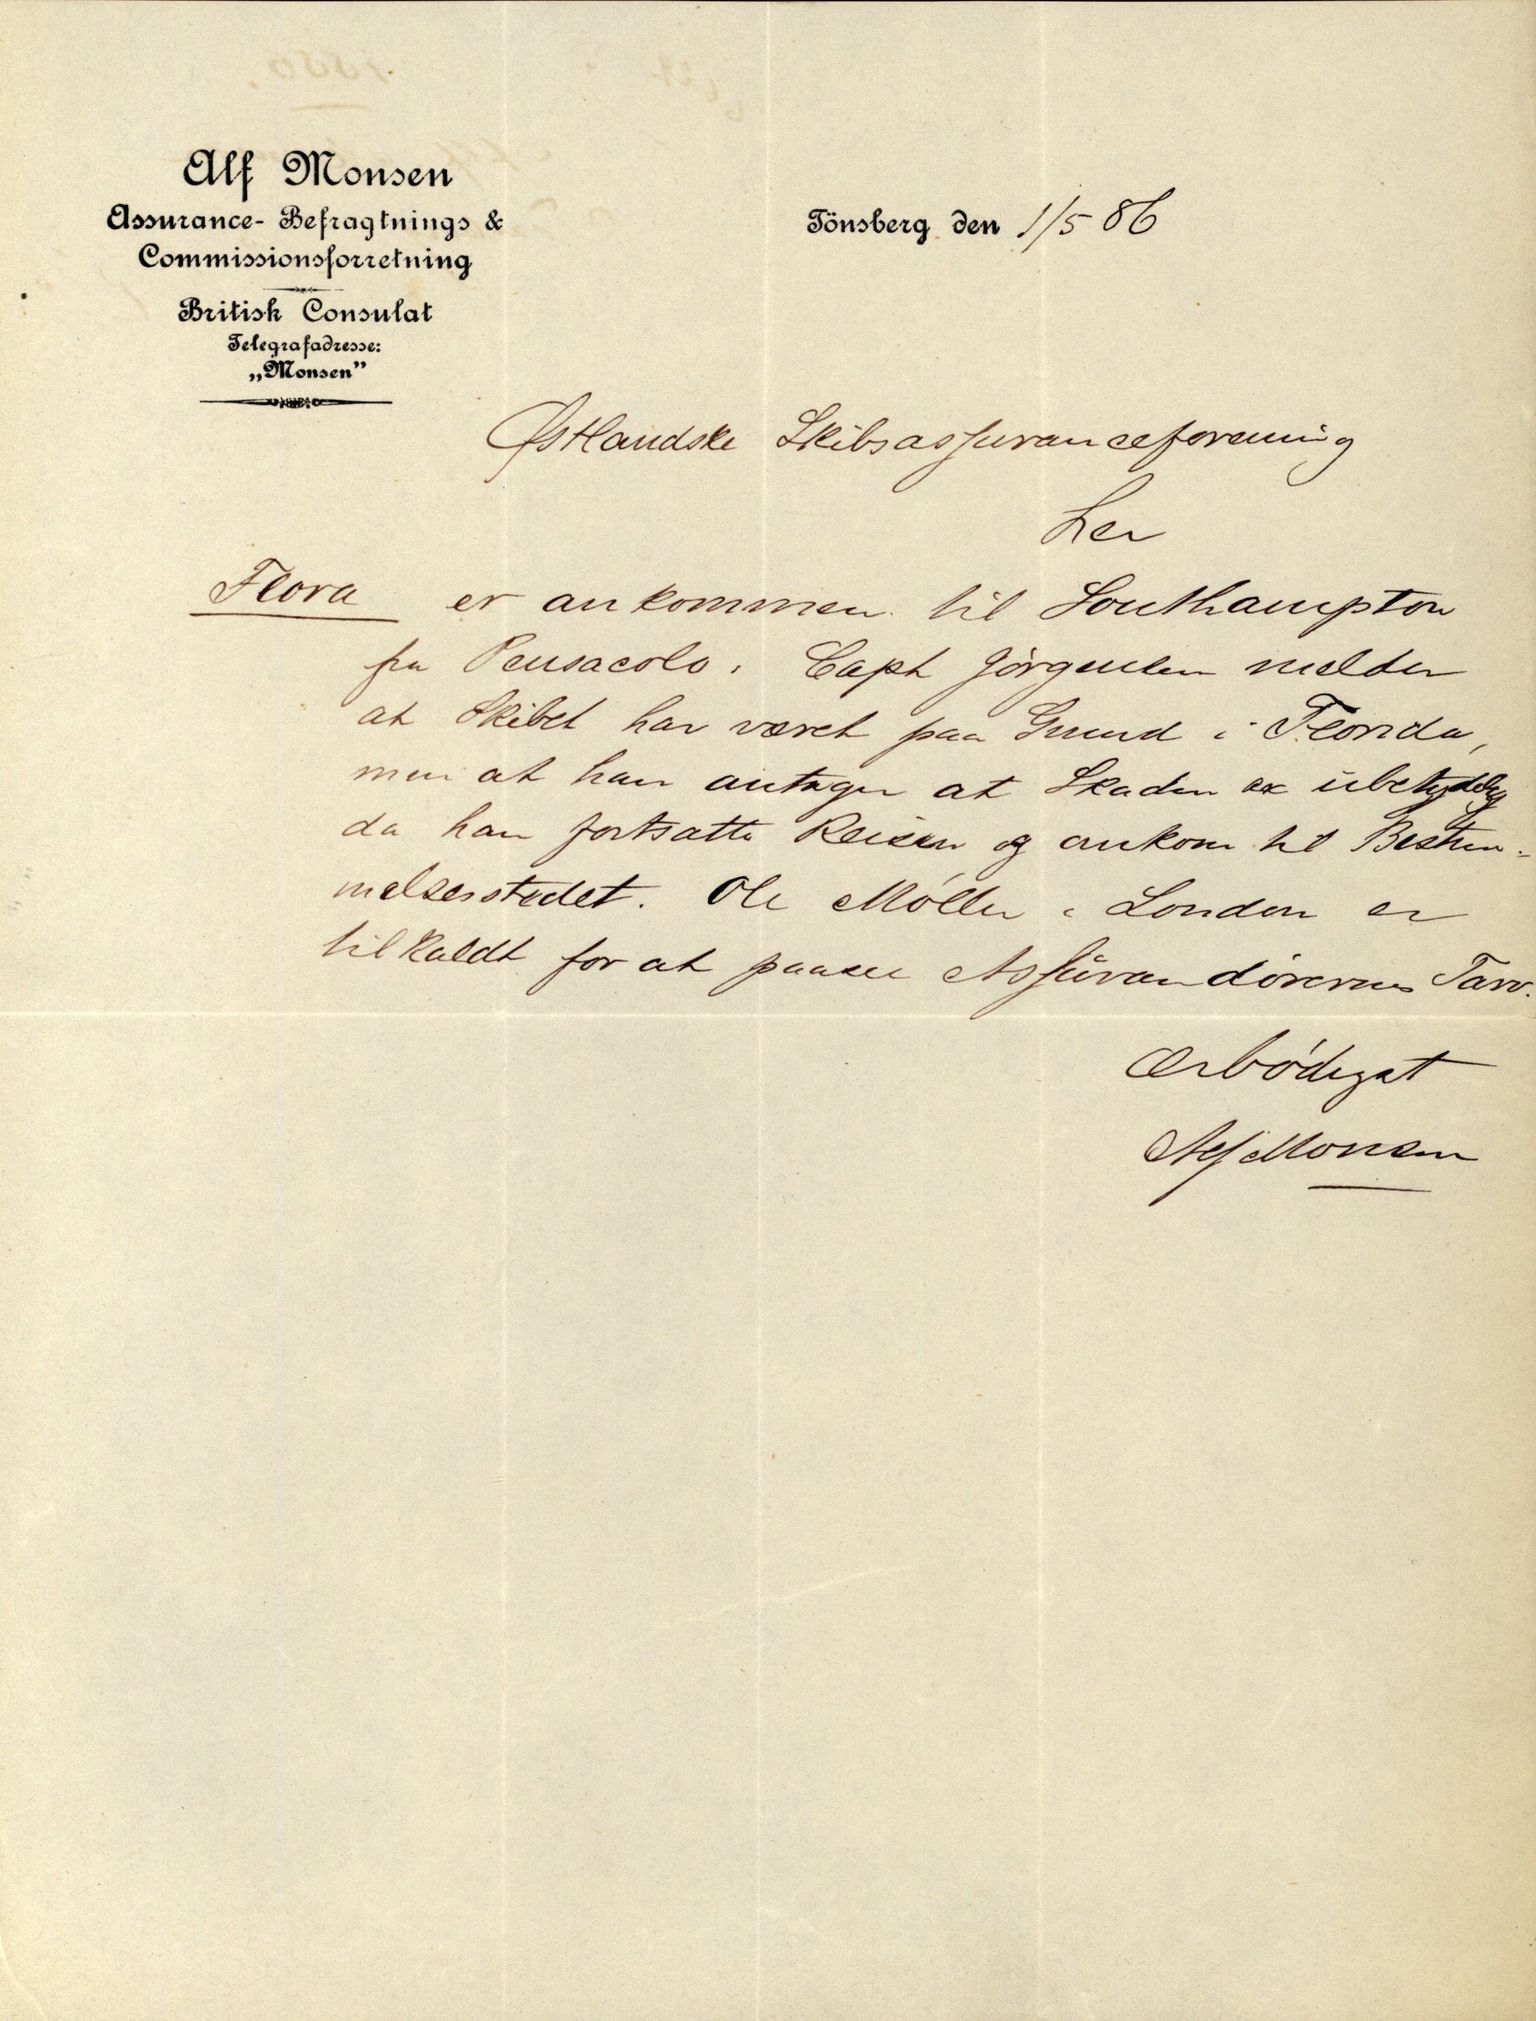 Alf Monsen
Assurance- Befragtnings &
Commissionsforretning
British Consulat
Telegrafadresse:
„Monsen”
Tönsberg den 1/5 86
Østlandske Skibsassuranceforening
her
Flora er ankommen til Southampton
fra Pensacola. Capt Jörgensen melder
at Skibet har været paa Grund i Florida,
men at han antager at Skaden er ubetydelig
da han fortsatte Reisen og ankom til Bestem-
melsesstedet. Ole Möller i London er
tilkaldt for at paasee Assurandörernes Tarv.
Ærbödigst
Alf Monsen